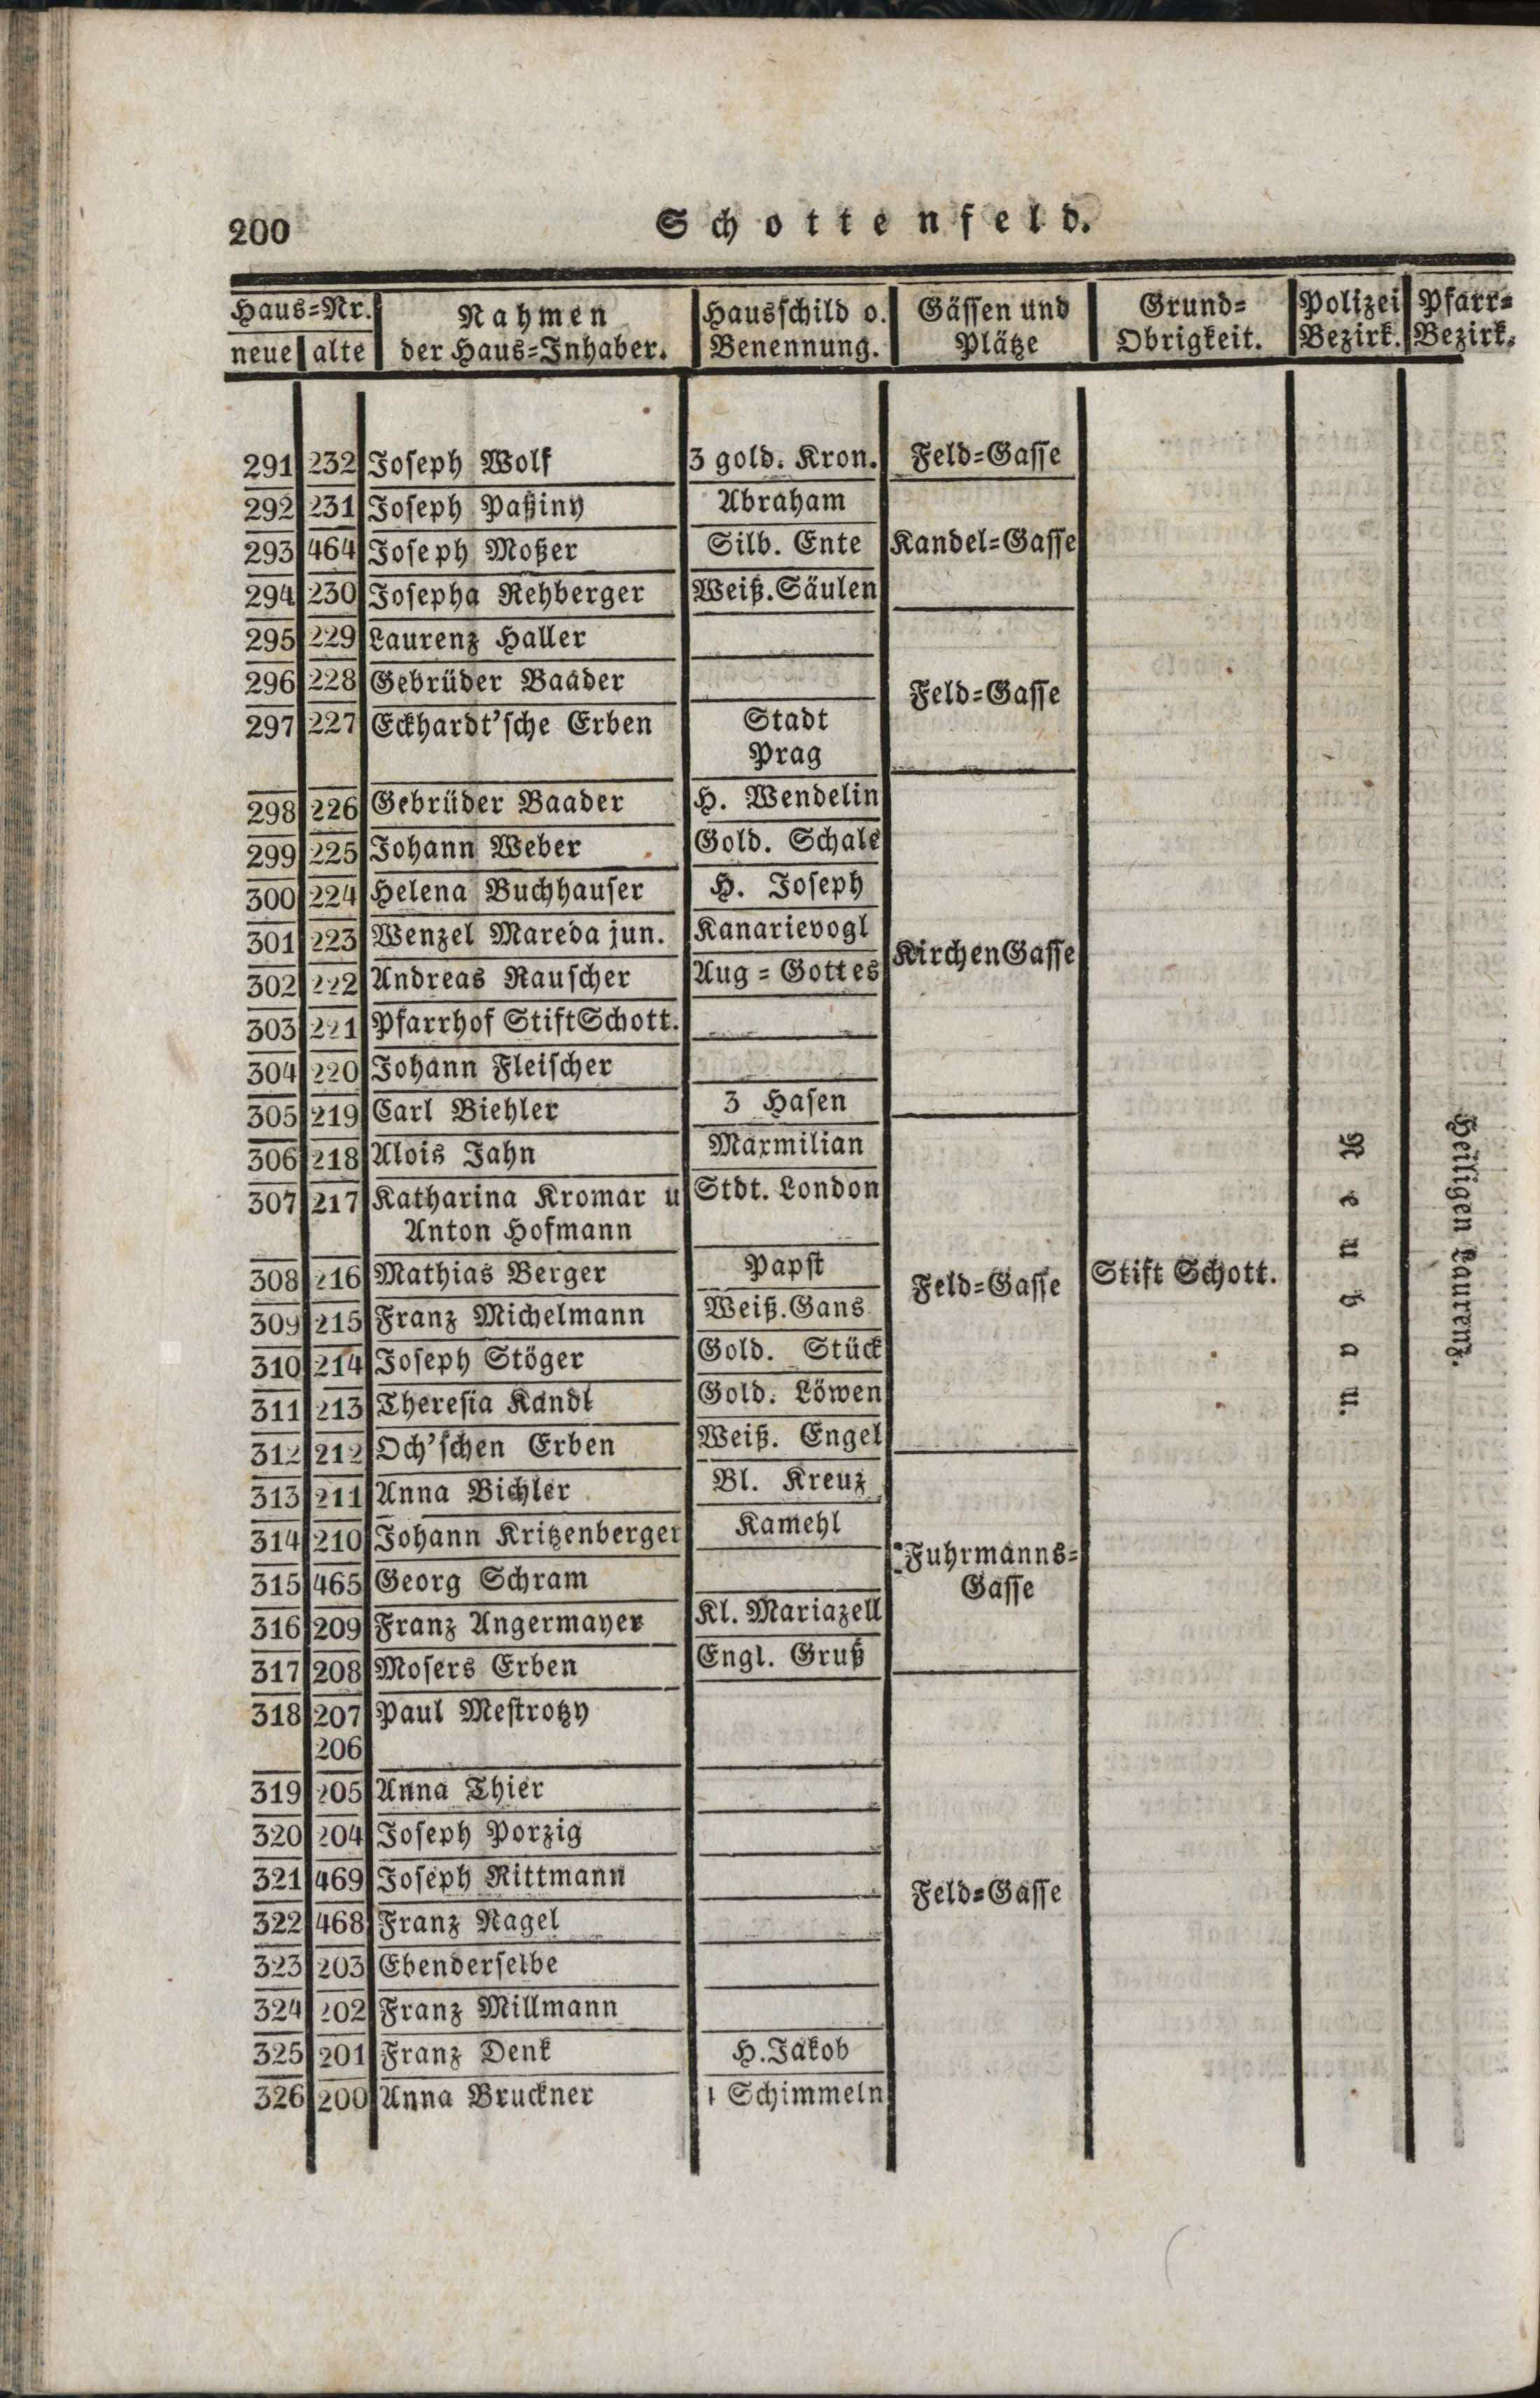 200
Schottenfeld.
Haus=Nr. Nahmen Hausschild o. Gässen und Grund= Polizei Pfarr=
neue alte der Haus=Inhaber. Benennung. Plätze Obrigkeit. Bezirk. Bezirk.
291 232 Joseph Wolf 3 gold. Kron. Feld=Gasse
292 231 Joseph Paßiny Abraham
293 464 Joseph Moßer Silb. Ente Kandel=Gasse
294 230 Josepha Rehberger Weiß. Säulen
295 229 Laurenz Haller
296 228 Gebrüder Baader Feld=Gasse
297 227 Eckhardt'sche Erben Stadt
Prag
298 226 Gebrüder Baader H. Wendelin
299 225 Johann Weber Gold. Schale
300 224 Helena Buchhauser H. Joseph
301 223 Wenzel Mareda jun. Kanarievogl KirchenGasse
302 222 Andreas Rauscher Aug = Gottes
303 221 Pfarrhof Stift Schott.
304 220 Johann Fleischer
305 219 Carl Biehler 3 Hasen
306 218 Alois Jahn Maxmilian
307 217 Katharina Kromar u Stdt. London
Anton Hofmann
308 216 Mathias Berger Papst Feld=Gasse Stift Schott. Neubau. Heiligen Laurenz.
309 215 Franz Michelmann Weiß. Gans
310 214 Joseph Stöger Gold. Stück
311 213 Theresia Kandl Gold. Löwen
312 212 Och'schen Erben Weiß. Engel
313 211 Anna Bichler Bl. Kreuz
314 210 Johann Kritzenberger Kamehl Fuhrmanns=
315 465 Georg Schram Gasse
316 209 Franz Angermayer Kl. Mariazell
317 208 Mosers Erben Engl. Gruß
318 207 Paul Mestrotzy
206
319 205 Anna Thier
320 204 Joseph Porzig
321 469 Joseph Rittmann Feld=Gasse
322 468 Franz Nagel
323 203 Ebenderselbe
324 202 Franz Millmann
325 201 Franz Denk H. Jakob
326 200 Anna Bruckner Schimmeln